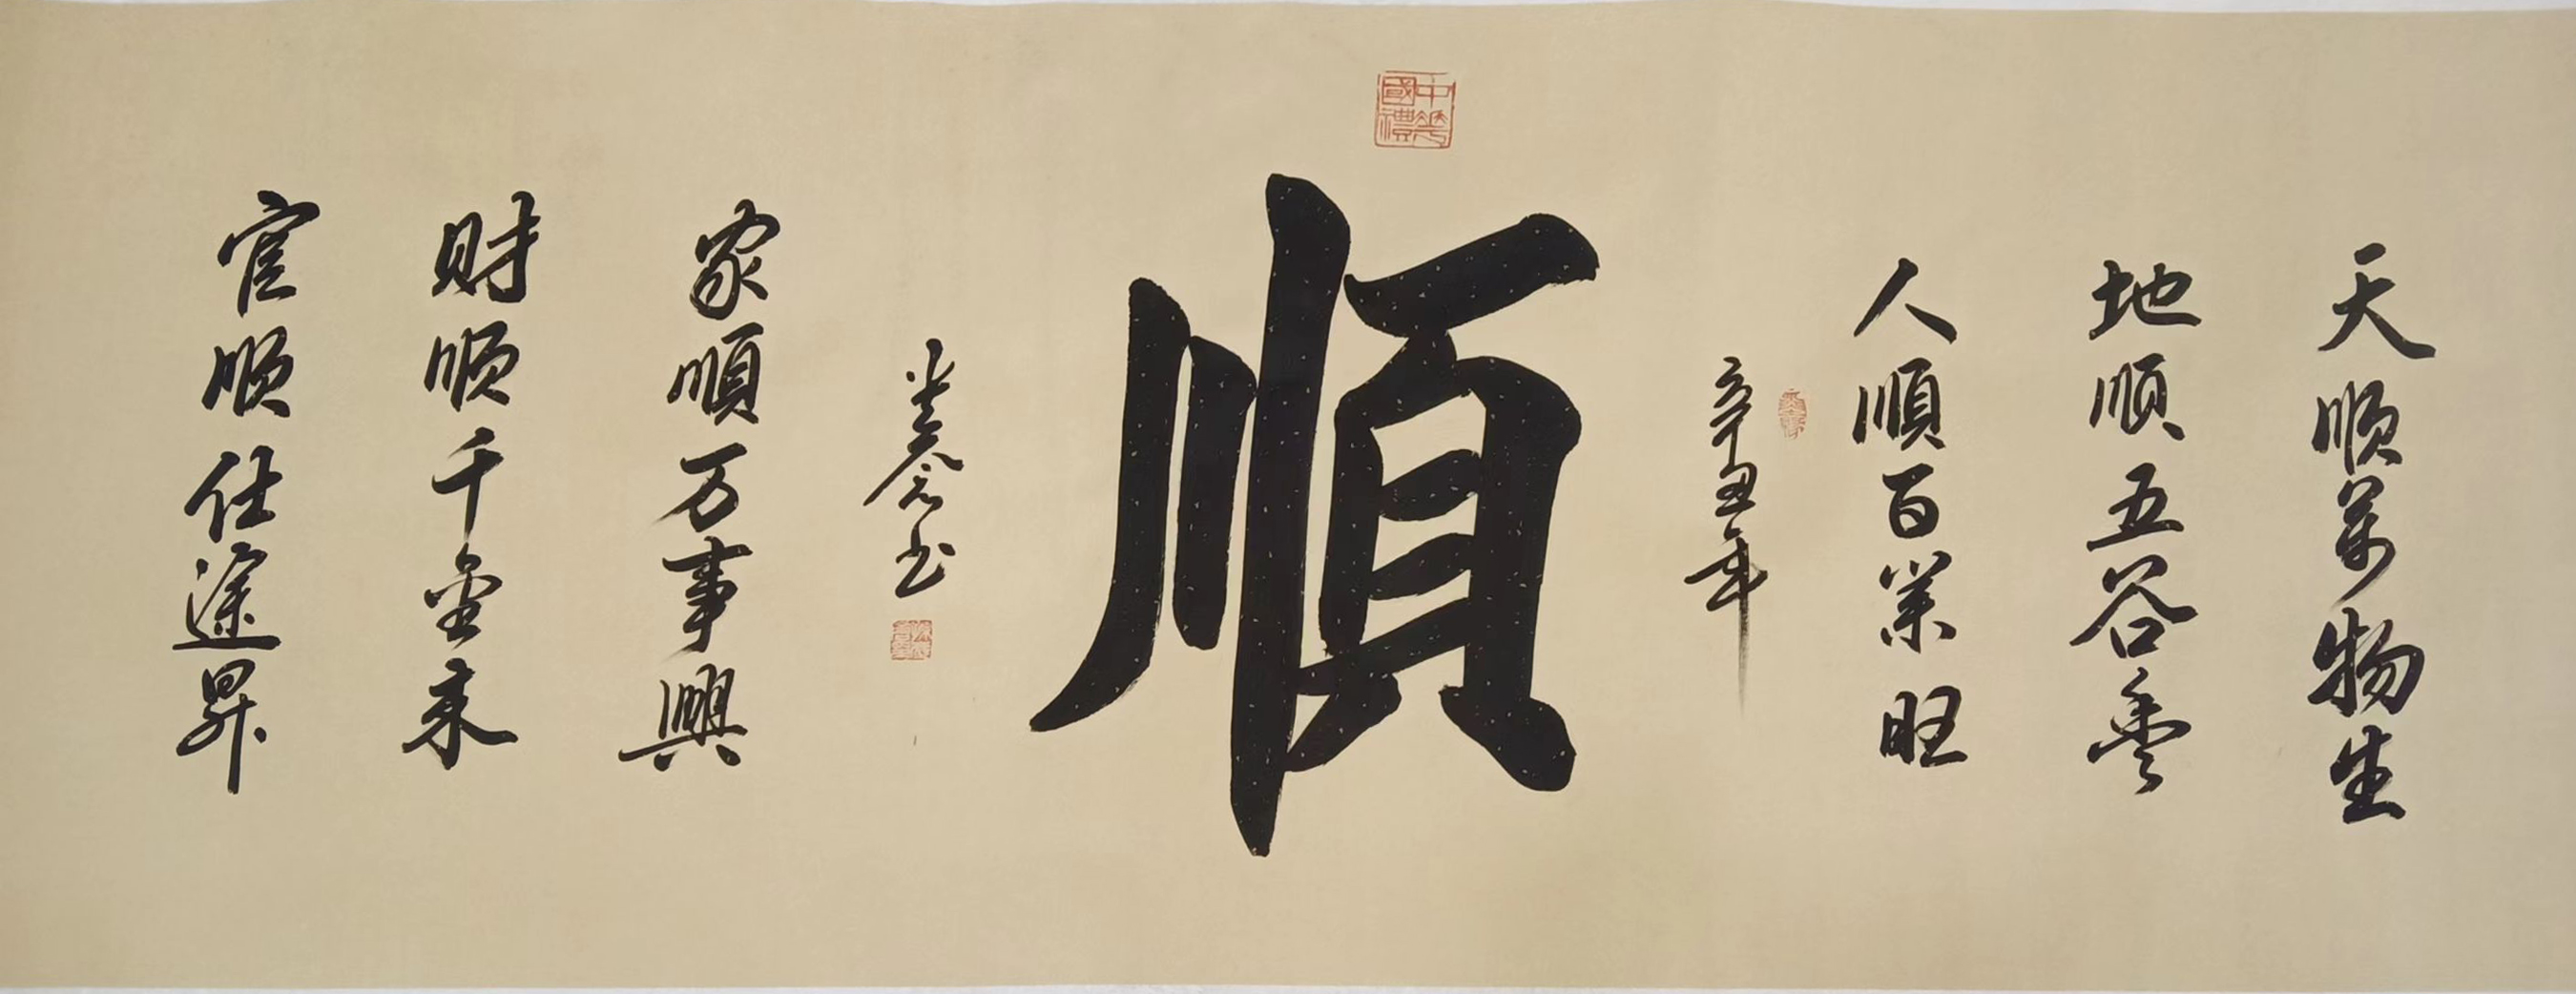 天顺萬物生
地順五谷豊
人順百業旺
辛丑年
順
中華國禮
家順万事興
财顺千金来
官顺仕途昇